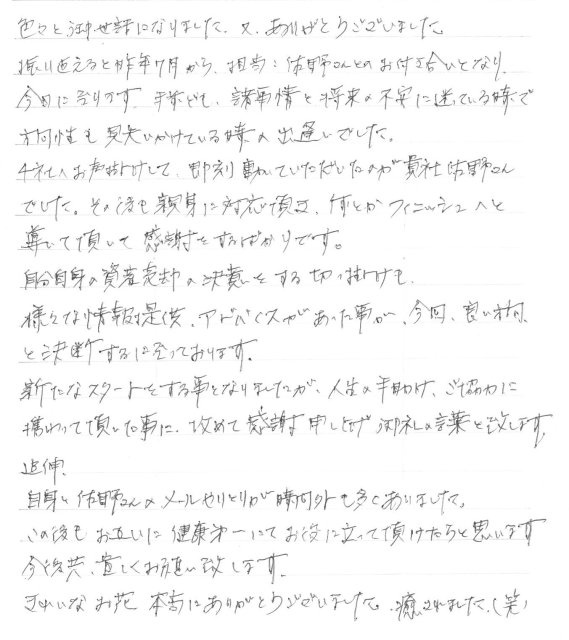 色々と御世話になりました。又、ありがとうございました。
振り返ると昨年7月から、担当:佐野さんとのお付き合いとなり、
今日に至ります。手前ども、諸事情と将来の不安に迷っている時で
方向性も見失いかけている時の出逢いでした。
4社へお声掛けして、即刻動いていただいたのが貴社佐野さん
でした。その後も親身に対応頂き、何とかフィニッシュへと
導いて頂いて感謝をするばかりです。
自分自身の資産売却の決意をする切っ掛けも、
様々な情報提供、アドバイスがあった事が、今回、良い方向
と決断するに至っております。
新たなスタートをする事となりましたが、人生の手助け、ご協力に
携わって頂いた事に、改めて感謝申し上げ御礼の言葉と致します。
追伸、
自身と佐野さんのメールやりとりが時間外も多くありまして。
この後もお互いに健康第一にてお役に立って頂けたらと思います
今後共、宜しくお願い致します。
きれいなお花本当にありがとうございました。癒されました。(笑)